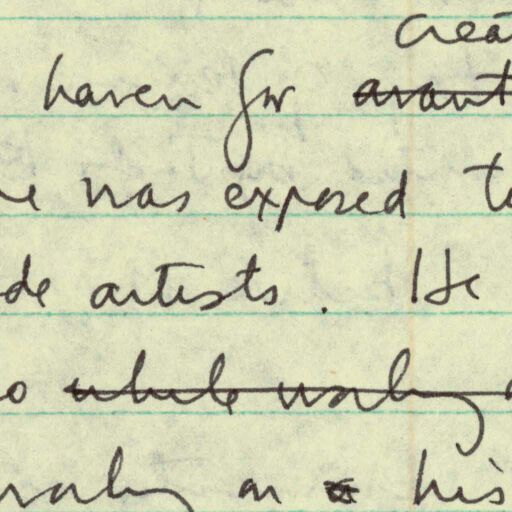 crea
haven for avant
he was exposed to
de artists. He
o while working
working on his